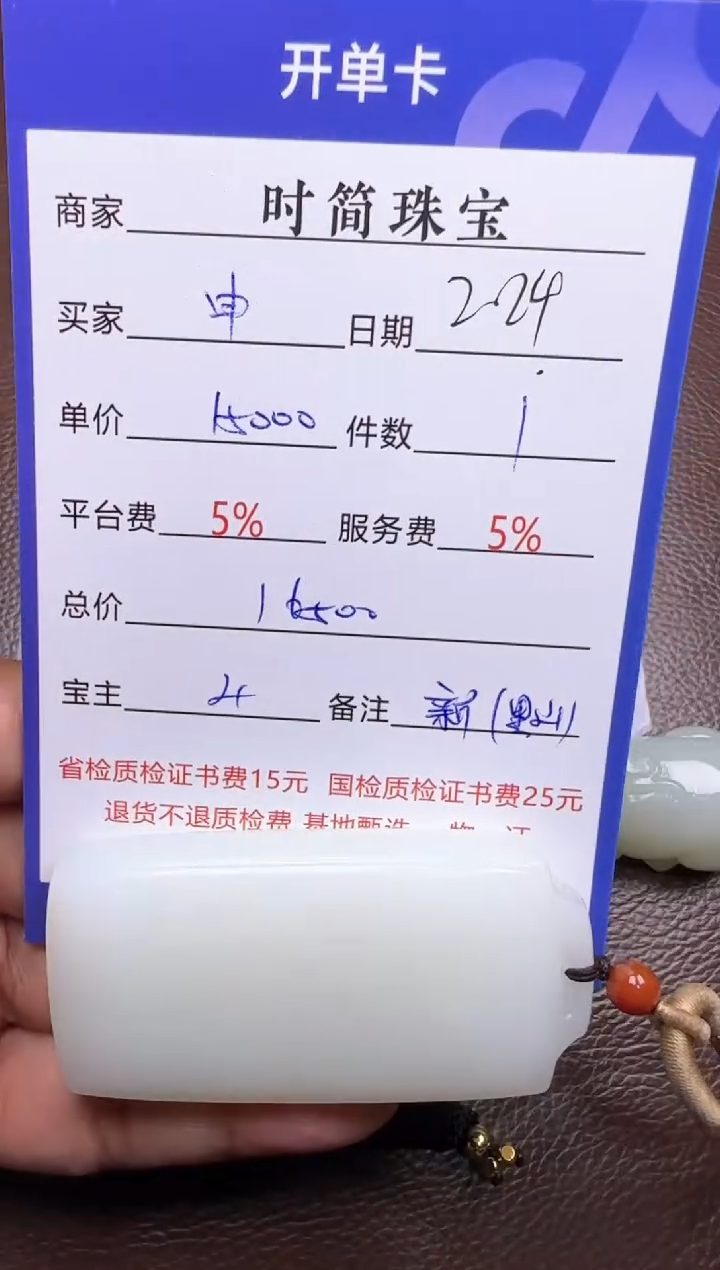 开单卡
商家 时简珠宝
买家 申 日期 2.24
单价 15000 件数 1
平台费 5% 服务费 5%
总价 16500
宝主 4 备注 新(
省检质检证书费15元 国检质检证书费25元
退货不退质检费 基地甄选 一物一证